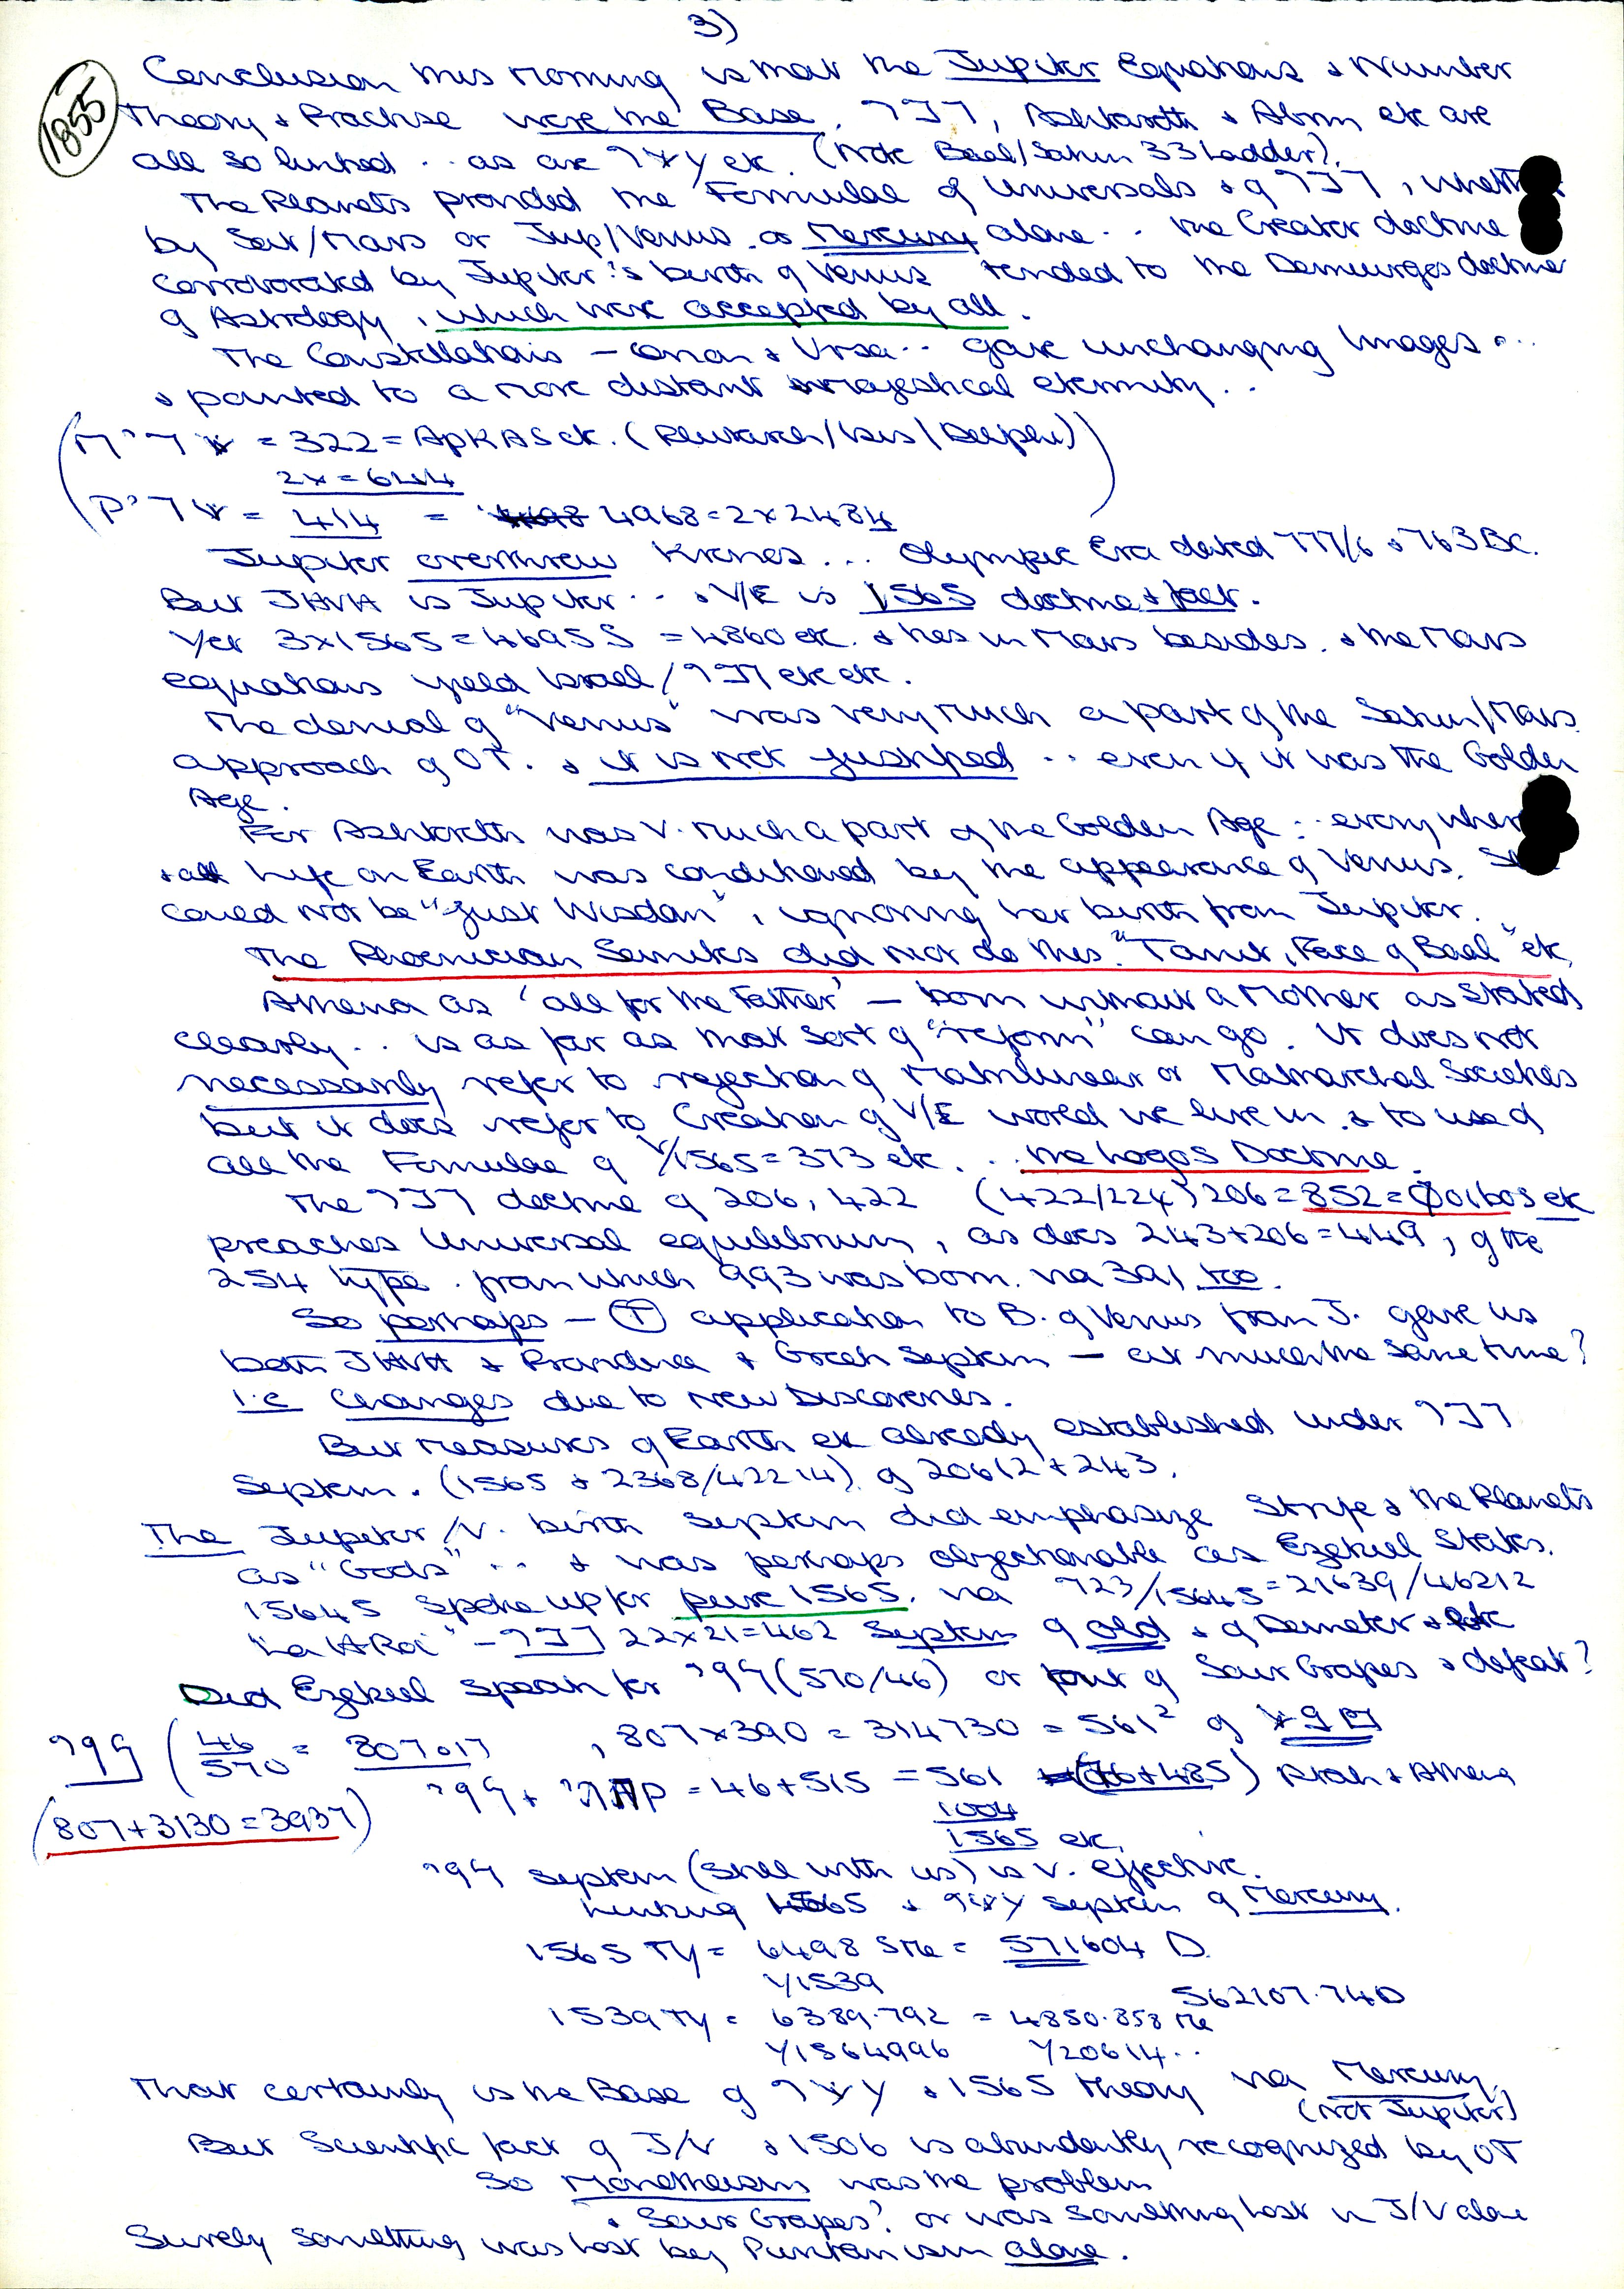 3)
1855
Conclusion this Morning is that the Jupiter Equations & Number
Theory & Practise were the Base. Ashtaroth & etc are
all so linked .. as are etc. (Note Baal/Saturn 33 Ladder).
The Planets provided the Formulae of Universals & of ,
by Sat/Mars or Jup/Venus or Mercury alone .. the Creator doctrine
corroborated by Jupiter's birth of Venus tended to the Demiurges doctrine
of Astrology, which were accepted by all.
The Constellations – Orion & Ursa .. gave unchanging Images ...
& pointed to a more distant majestical eternity ..
= 322 = etc. (Plutarch/Isis/Delphi)
2x = 644
= 414 = 4968 = 2 x 2484
Jupiter overthrew Kronos ... Olympic Era dated 777/6 & 763 BC.
But JHVH is Jupiter .. & V/E is 1565 doctrine & fact.
Yet 3x1565 = 4695 S = 4860 etc. & lies in Mars besides. & the Mars
equations yield Israel / etc etc.
The denial of "Venus" was very much a part of the Saturn/Mars
approach of OT. & it is not justified .. even if it was the Golden
Age.
For Ashtaroth was V. much a part of the Golden Age : everywhere
& all life on Earth was conditioned by the appearance of Venus.
could not be "just Wisdom", ignoring her birth from Jupiter.
The Phoenician Semites did not do this. "Tanit, Face of Baal" etc
Athena as 'all for the Father' – born without a Mother as stated
clearly .. is as far as that sort of "reform" can go. It does not
necessarily refer to rejection of Matrilinear or Matriarchal Societies
but it does refer to Creation of V/E world we live in & to use of
all the Formulae of √1565 = 373 etc. .. the Logos Doctrine.
The doctrine of 206, 422 (422/224) 206 = 852 = etc
preaches Universal equilibrium, as does 243+206 = 449, of the
254 type. from which 993 was born. via 391 too.
So perhaps – (T) application to B. of Venus from J. gave us
both JHVH & & Greek System – at much the same time?
i.e. Changes due to New Discoveries.
But Measures of Earth etc already established under
System. (1565 & 2368/42214) of 20612 + 243.
The Jupiter/V. birth system did emphasize Strife & the Planets
as "Gods" ... & was perhaps objectionable as Ezekiel states.
15645 spoke up for pure 1565. via 723/15645 = 21639/46212
22x21 = 462 System of old & of Demeter &
Did Ezekiel speak for (570/46) or out of Sour Grapes & defeat?
(46/570 = 807.017 , 807x390 = 314730 = 561² of
+ = 46+515 = 561 (76+485) Ptah & Athena
(807+3130 = 3937)
1004
1565 etc.
system (still with us) is v. effective.
linking 1565 & system of Mercury.
1565 TY = 6498 SMe = 571604 D.
√1539
562107.74D
1539 TY = 6389.792 = 4850.858 Me
√1564996 √20614..
That certainly is the Base of & 1565 theory via Mercury.
(not Jupiter)
But Scientific fact of J/V & 1506 is abundantly recognized by OT
So Monotheism was the problem
& Sour Grapes? or was something lost in J/V alone
Surely something was lost by Puritanism alone.